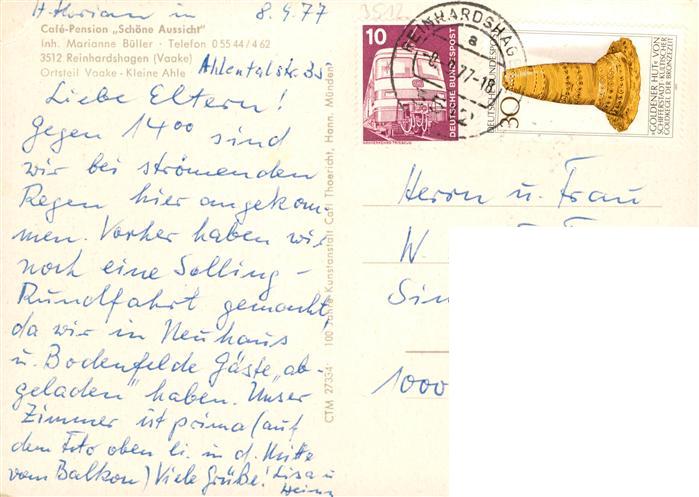 8.9.77
Café-Pension „Schöne Aussicht"
Inh. Marianne Büller · Telefon 0 55 44 / 4 62
3512 Reinhardshagen (Vaake)
Ortsteil Vaake - Kleine Ahle
Ahlentalstr. 35
Liebe Eltern!
Gegen 14⁰⁰ sind
wir bei strömenden
Regen hier angekom-
men. Vorher haben wir
noch eine Solling-
Rundfahrt gemacht,
da wir in Neuhaus
u. Bodenfelde Gäste „ab-
geladen" haben. Unser
Zimmer ist prima (auf
dem Foto oben li. in d. Mitte
vom Balkon) Viele Grüße! Lisa u
Heinz
CTM 27334 100 Jahre Kunstanstalt Carl Thoericht, Hann. Münden
3512
REINHARDSHAGEN
a
77-18
10
DEUTSCHE BUNDESPOST
30
DEUTSCHE BUNDESPOST
›GOLDENER HUT‹ VON
SCHIFFERSTADT · KULTISCHER
GOLDKEGEL DER BRONZEZEIT
Herrn u. Frau
W.
Sin
1000